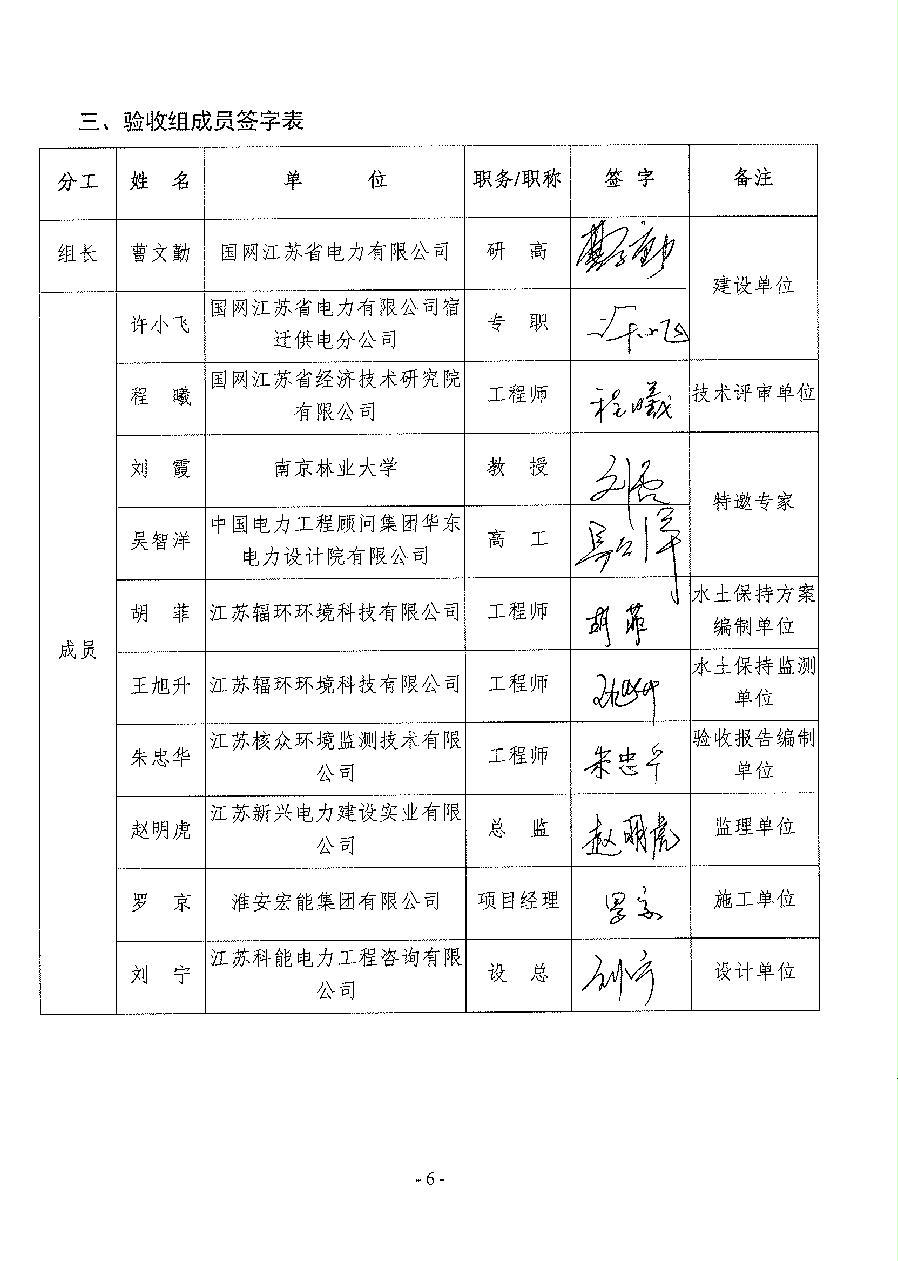 三、验收组成员签字表
分工 姓 名 单 位 职务/职称 签 字 备注
组长 曹文勤 国网江苏省电力有限公司 研 高 曹文勤 建设单位
成员
许小飞 国网江苏省电力有限公司宿
迁供电分公司 专 职 许小飞
程 曦 国网江苏省经济技术研究院
有限公司 工程师 程曦 技术评审单位
刘 霞 南京林业大学 教 授 刘霞 特邀专家
吴智洋 中国电力工程顾问集团华东
电力设计院有限公司 高 工
胡 菲 江苏辐环环境科技有限公司 工程师 胡菲 水土保持方案
编制单位
王旭升 江苏辐环环境科技有限公司 工程师 水土保持监测
单位
朱忠华 江苏核众环境监测技术有限
公司 工程师 朱忠华 验收报告编制
单位
赵明虎 江苏新兴电力建设实业有限
公司 总 监 赵明虎 监理单位
罗 京 淮安宏能集团有限公司 项目经理 罗京 施工单位
刘 宁 江苏科能电力工程咨询有限
公司 设 总 刘宁 设计单位
- 6 -